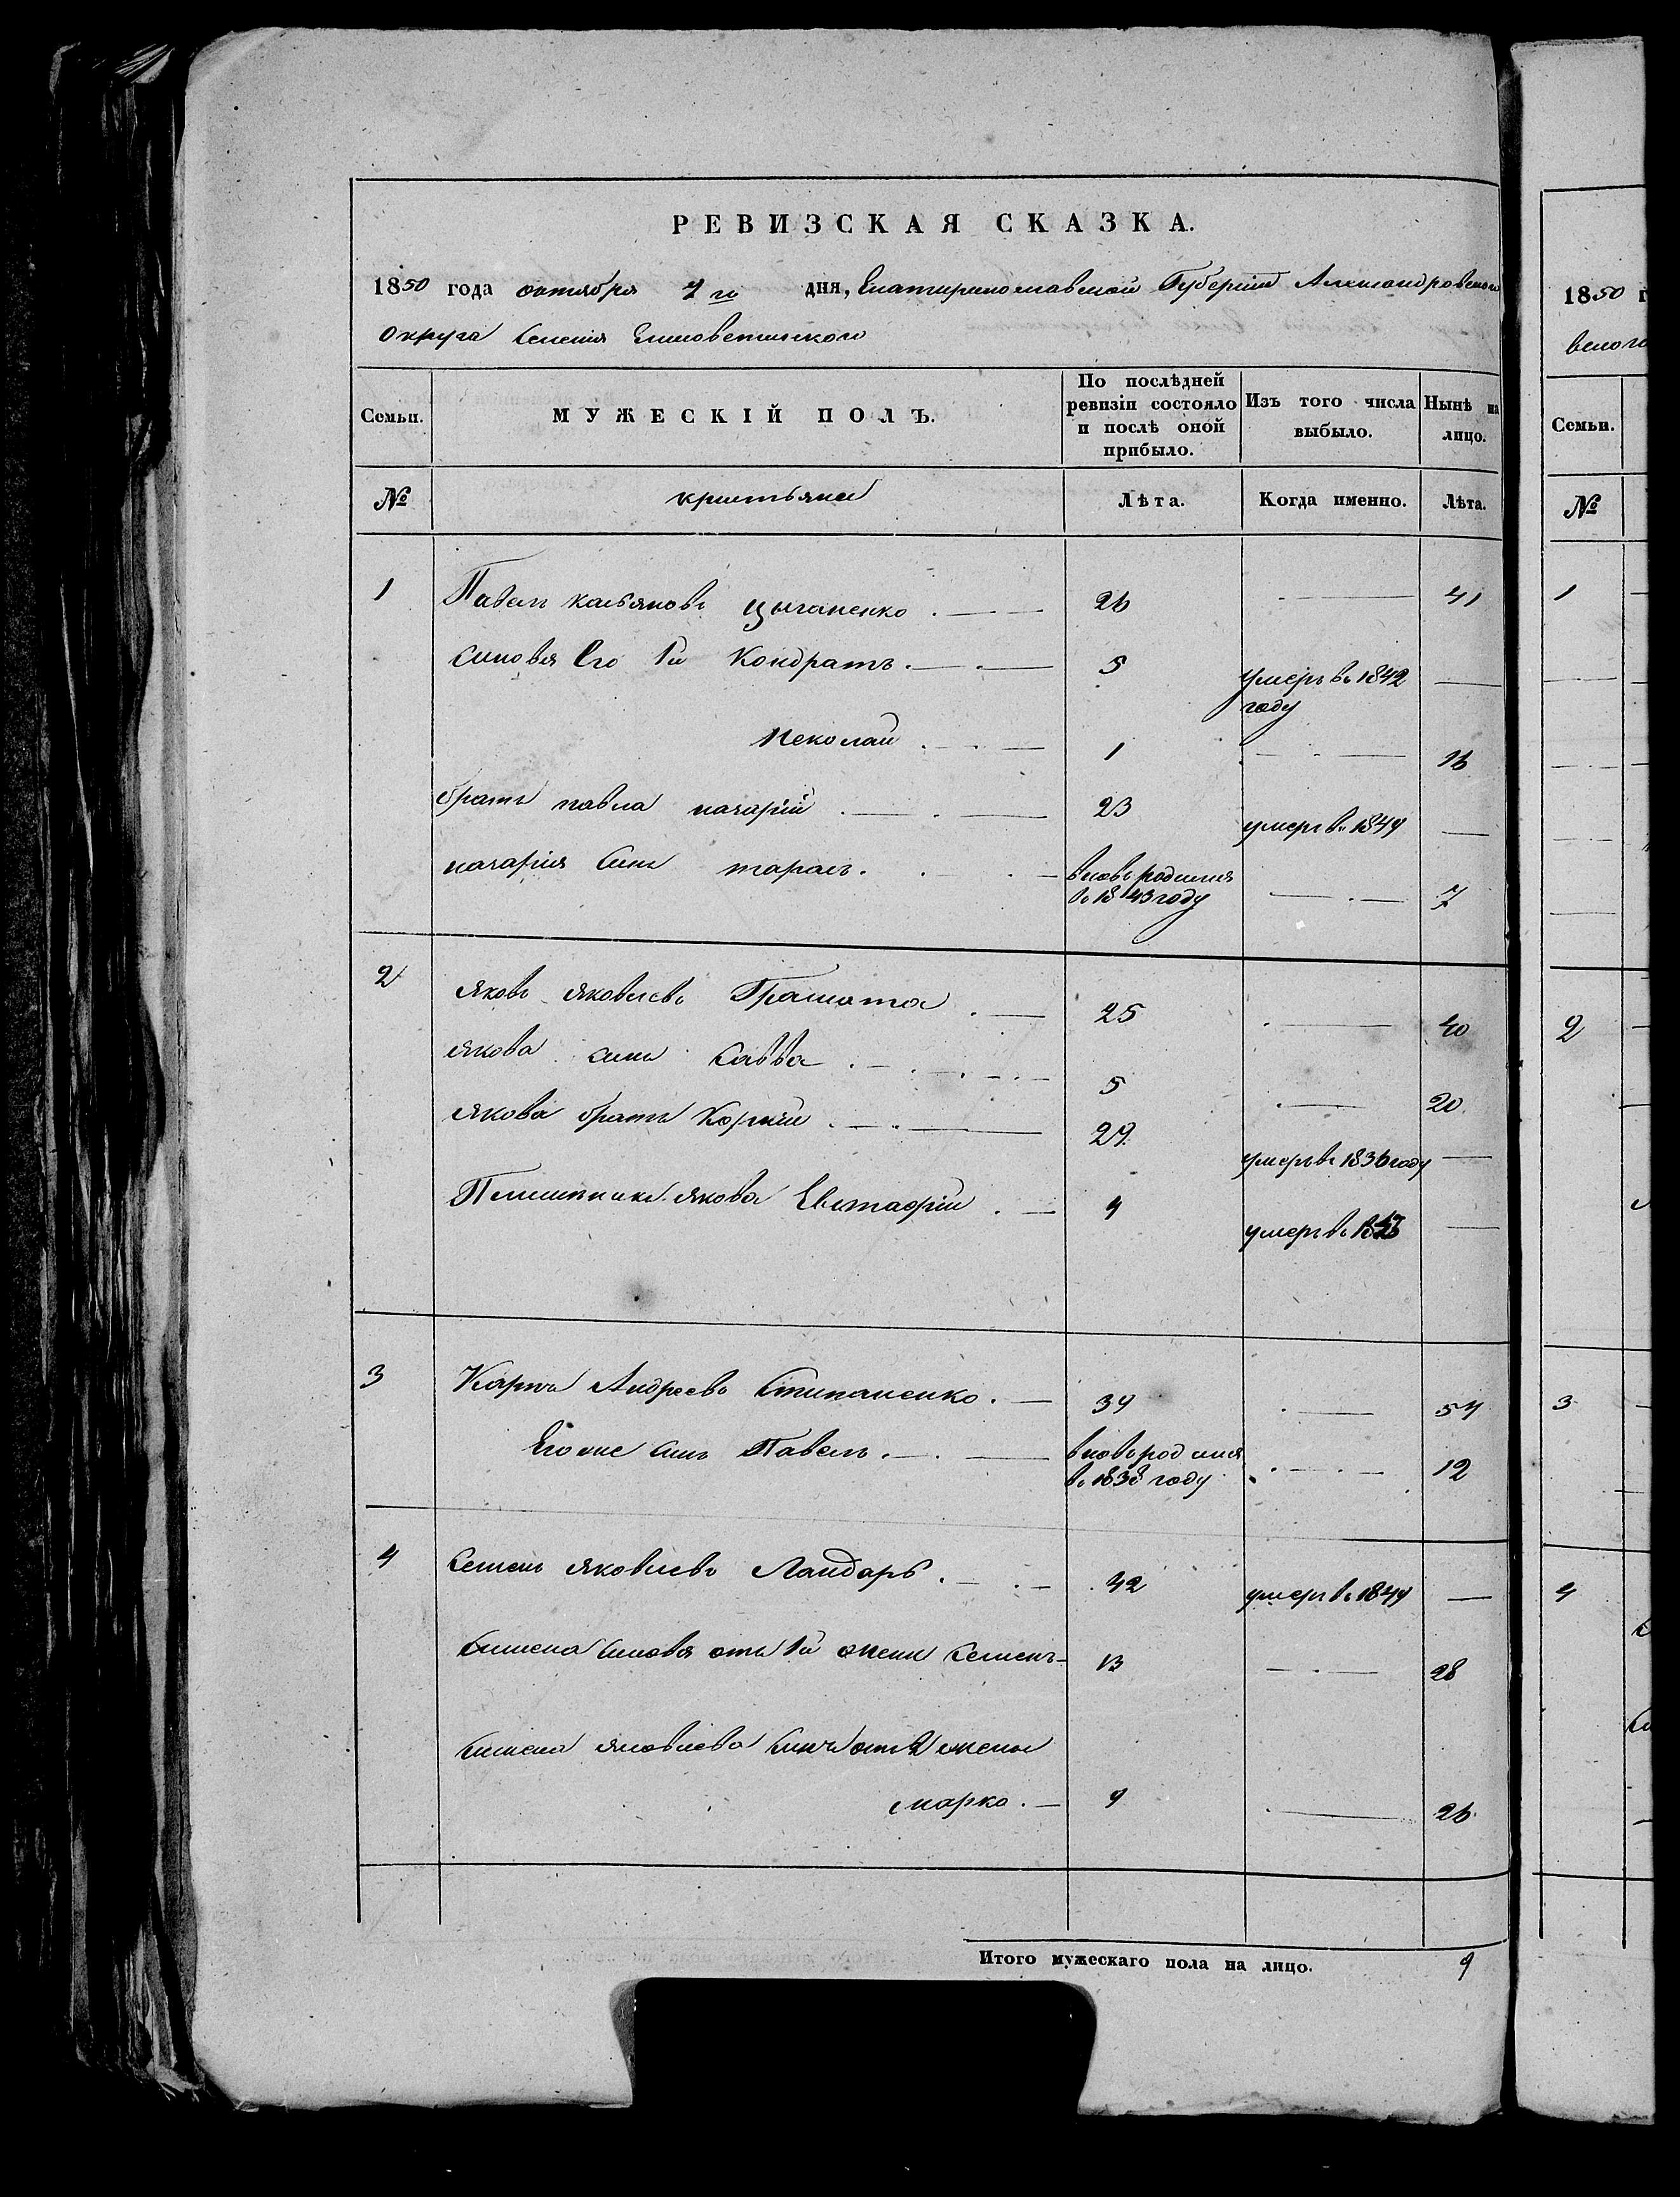 РЕВИЗСКАЯ СКАЗКА.
1850 года октября 7го дня, Екатеринославской Губернии Александровского
округа Селения Елисаветинского
Семьи. МУЖЕСКІЙ ПОЛЪ. По послѣдней ревизіи состояло и послѣ оной прибыло. Изъ того числа выбыло. Нынѣ на лицо.
№ кристьяне Лѣта. Когда именно. Лѣта.
1 Павелъ Касьяновъ Цыганенко 26 41
Сыновья Его 1й Кондратъ 5 умеръ въ 1842 году
Неколай 1 16
братъ павла назарій 23 умеръ въ 1849
назарія Сынъ тарасъ вновь родился в 1843 году 7
2 Яковъ Яковлевъ 25 40
Якова сынъ Савва 5 20
Якова братъ Корній 29 умеръ въ 1836 году
Племянникъ Якова Евстафій 4 умеръ въ
3 Карпъ Андреевъ Стипаненко 39 54
Его же Сынъ Павелъ вновь родился в 1838 году 12
4 Семенъ Яковлевъ Ландарь 42 умеръ въ 1849
Симена Сыновья отъ 1й жены Семенъ 13 28
Симена Яковлева Сынъ отъ 2 жены
Марко 9 26
Итого мужескаго пола на лицо. 9
1850 г
Семьи.
№
1
2
3
4